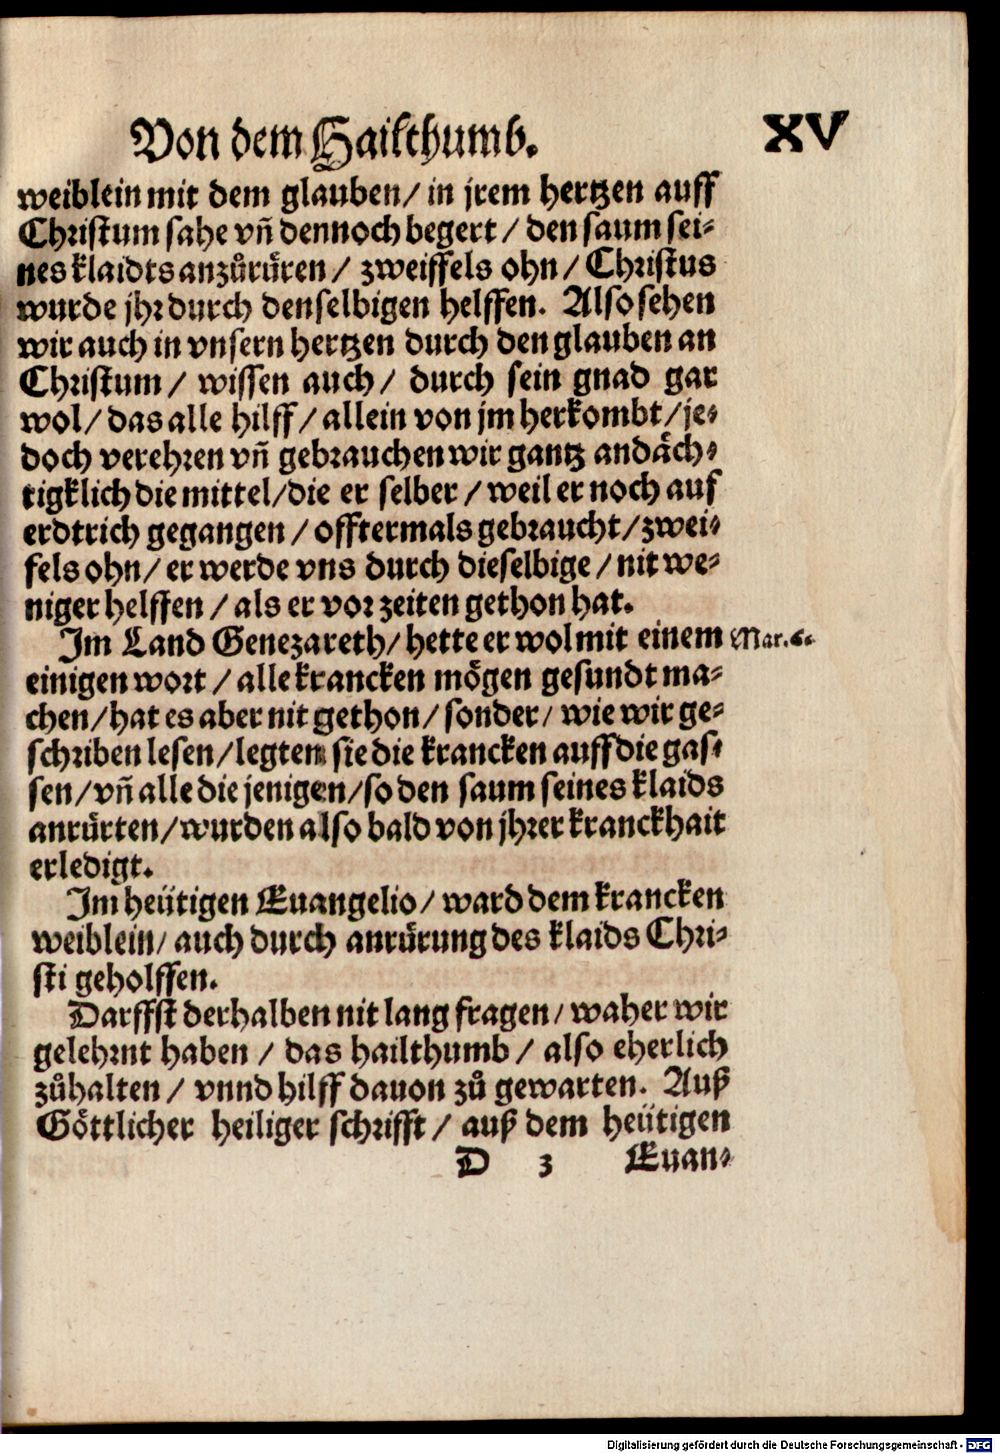 Von dem Hailthumb. XV
weiblein mit dem glauben/ in jrem hertzen auff
Christum sahe vñ dennoch begert / den saum sei-
nes klaidts anzůrüren / zweiffels ohn / Christus
wurde jhr durch denselbigen helffen. Also sehen
wir auch in vnsern hertzen durch den glauben an
Christum / wissen auch / durch sein gnad gar
wol / das alle hilff / allein von jm herkombt / je-
doch verehren vñ gebrauchen wir gantz andäch-
tigklich die mittel/die er selber / weil er noch auf
erdtrich gegangen / offtermals gebraucht/ zwei-
fels ohn/ er werde vns durch dieselbige / nit we-
niger helffen / als er vor zeiten gethon hat.
Im Land Genezareth/ hette er wol mit einem Mar.6.
einigen wort / alle krancken mögen gesundt ma-
chen/ hat es aber nit gethon/ sonder/ wie wir ge-
schriben lesen / legten sie die krancken auff die gas-
sen /vñ alle die jenigen/so den saum seines klaids
anrürten/wurden also bald von jhrer kranckhait
erledigt.
Im heütigen Euangelio/ ward dem krancken
weiblein/ auch durch anrürung des klaids Chri-
sti geholffen.
Darffst derhalben nit lang fragen/ waher wir
gelehrnt haben / das hailthumb / also eherlich
zůhalten / vnnd hilff dauon zů gewarten. Auß
Göttlicher heiliger schrifft / auß dem heütigen
D 3 Euan-
Digitalisierung gefördert durch die Deutsche Forschungsgemeinschaft - DFG